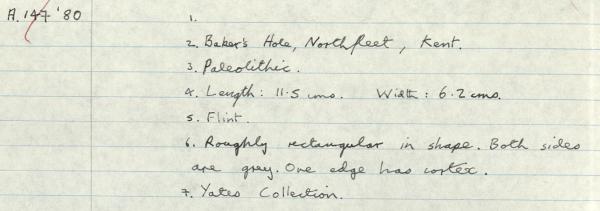 A.147 '80
1.
2. Baker's Hole, Northfleet, Kent.
3. Paleolithic.
4. Length: 11.5 cms. Width: 6.2 cms.
5. Flint.
6. Roughly rectangular in shape. Both sides
are grey. One edge has cortex.
7. Yates Collection.